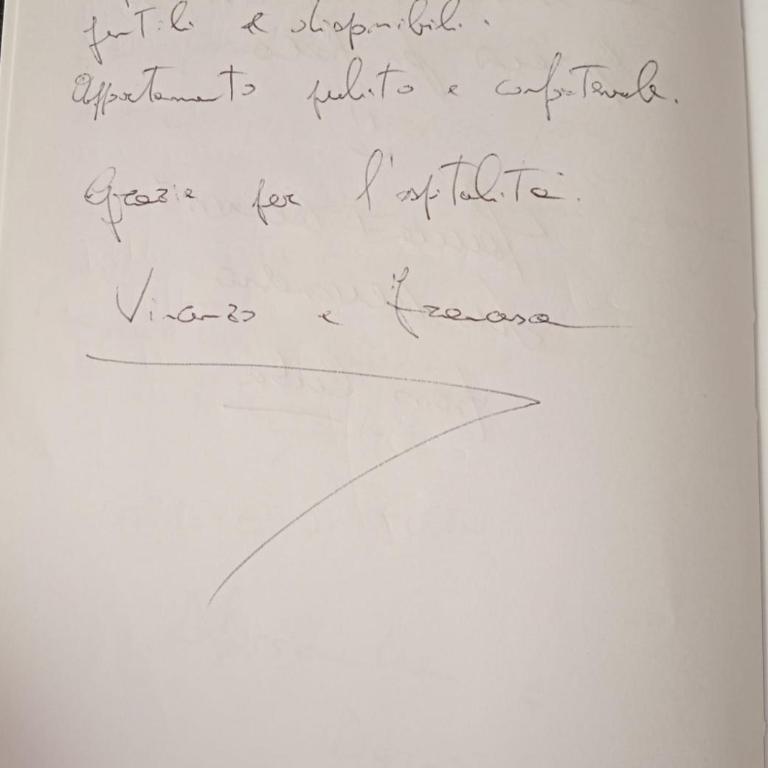 gentili e disponibili.
Appartamento pulito e confortevole.
Grazie per l'ospitalità.
Vincenzo e Francesca